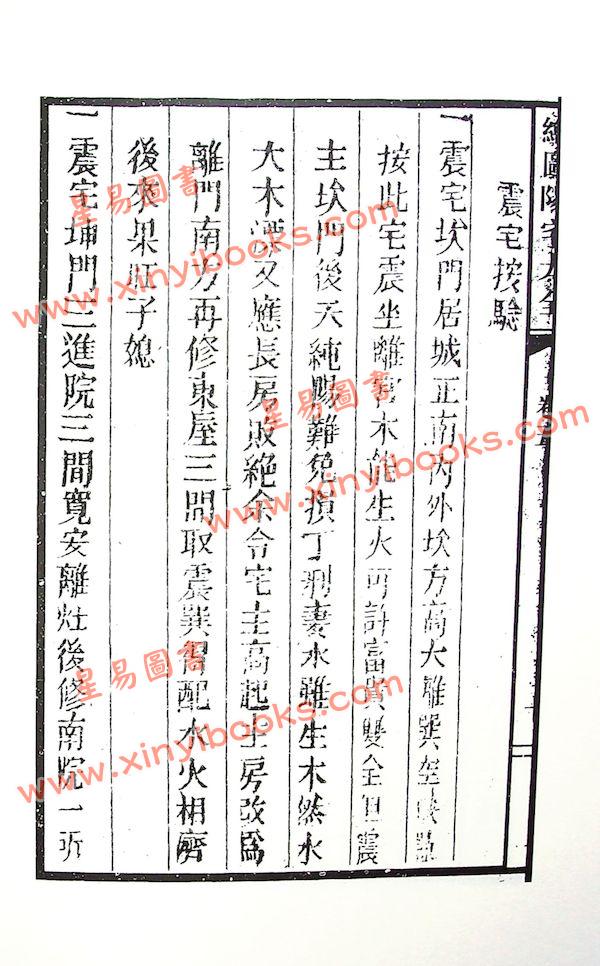 震宅按驗
一震宅坎門居城正南內外坎方高大離巽
按此宅震坐離宮木能生火可許富貴雙全但震
主坎門後天純陽難免損丁剋妻水雖生木然水
大木漂又應長房敗絕余令宅主高起主房改為
離門南方再修東屋三間取震巽相配水火相濟
後來果旺子媳
一震宅坤門三進院三間寬安離灶後修南院一所
陽宅大全
卷
星易圖書
www.xinyibooks.com
星易圖書
www.xinyibooks.com
星易圖書
www.xinyibooks.com
星易圖書
www.xinyibooks.com